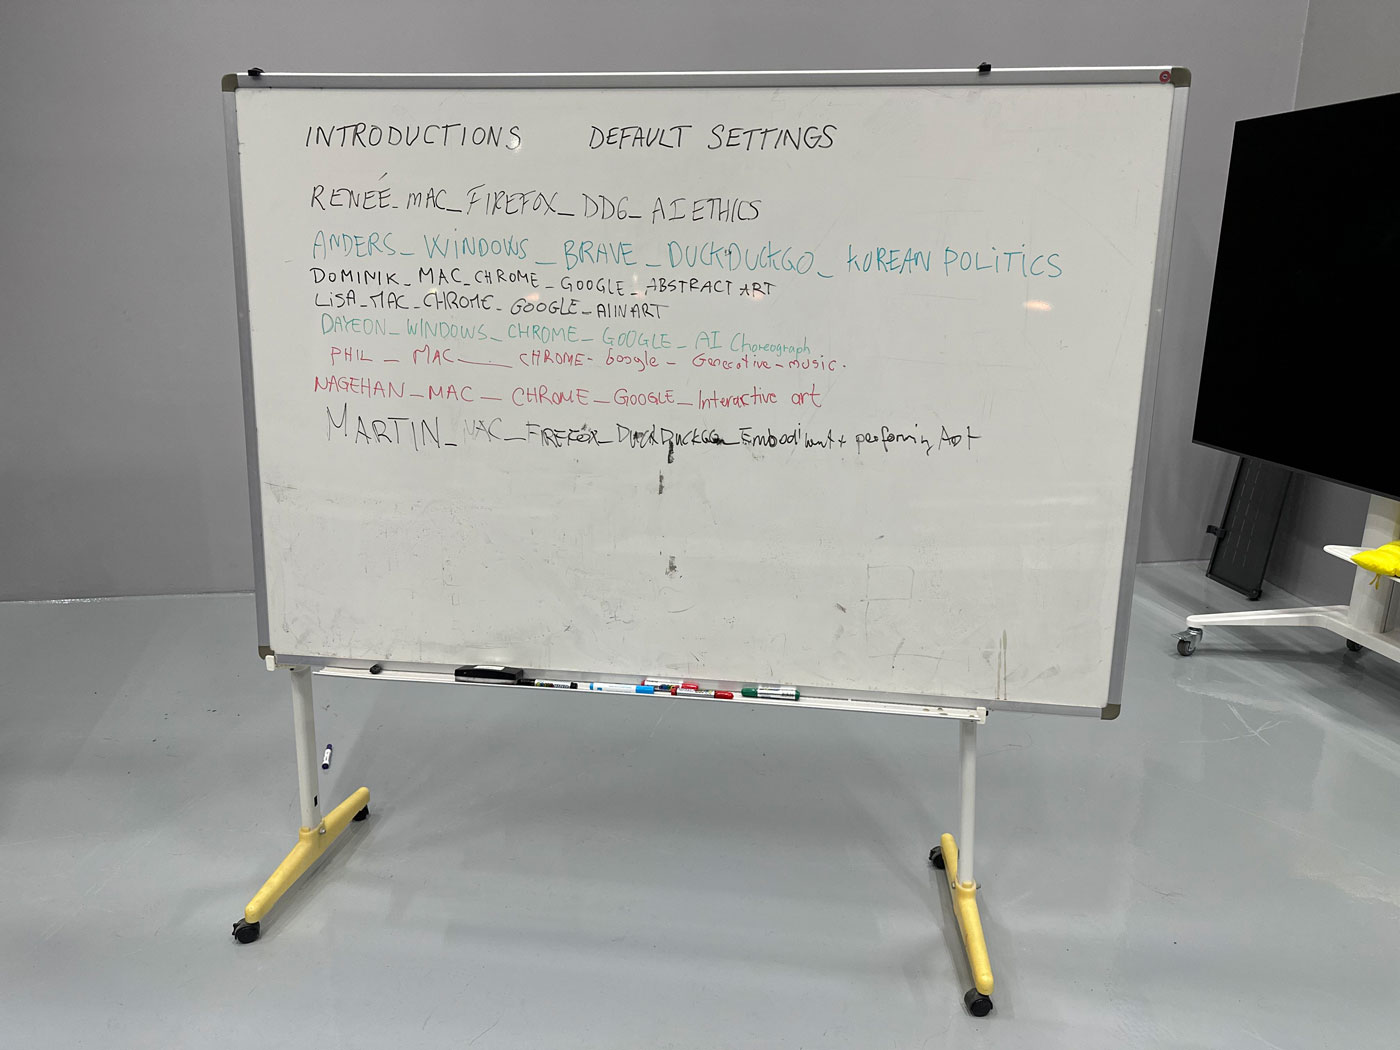 INTRODUCTIONS DEFAULT SETTINGS
RENEÉ_MAC_FIREFOX_DDG_AI ETHICS
ANDERS_WINDOWS_BRAVE_DUCKDUCKGO_KOREAN POLITICS
DOMINIK_MAC_CHROME_GOOGLE_ABSTRACT ART
LISA_MAC_CHROME_GOOGLE_AI IN ART
DAYEON_WINDOWS_CHROME_GOOGLE_AI Choreograph
PHIL_MAC_CHROME-Google-Generative-music.
NAGEHAN_MAC_CHROME_GOOGLE_Interactive art
MARTIN_MAC_FIREFOX_DUCKDUCKGO_performing Art